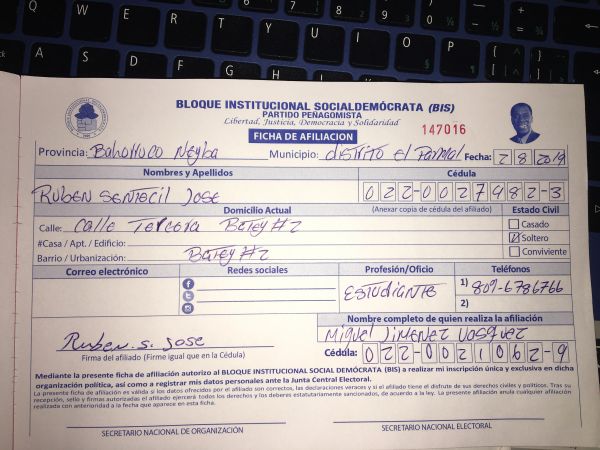 Q W E R T Y U I O P
A S D F G H J K L
BLOQUE INSTITUCIONAL SOCIALDEMÓCRATA (BIS)
PARTIDO PEÑAGOMISTA
Libertad, Justicia, Democracia y Solidaridad
FICHA DE AFILIACION
147016
Provincia: Bahoruco Neyba Municipio: Distrito el Palmal Fecha: 2 8 2019
Nombres y Apellidos Cédula
Ruben Sentecil Jose 022-0027982-3
Domicilio Actual (Anexar copia de cédula del afiliado) Estado Civil
Calle: Calle Tercera Batey #2 Casado
#Casa / Apt. / Edificio: Soltero
Barrio / Urbanización: Batey #2 Conviviente
Correo electrónico Redes sociales Profesión/Oficio Teléfonos
Estudiante 1) 809-6786766
2)
Nombre completo de quien realiza la afiliación
Ruben. S. Jose Miguel Jimenez Vasquez
Firma del afiliado (Firme igual que en la Cédula) Cédula: 022-0021062-9
Mediante la presente ficha de afiliación autorizo al BLOQUE INSTITUCIONAL SOCIAL DEMÓCRATA (BIS) a realizar mi inscripción única y exclusiva en dicha
organización política, así como a registrar mis datos personales ante la Junta Central Electoral.
La presente ficha de afiliación es valida si los datos ofrecidos por el afiliado son correctos, las declaraciones veraces y si el afiliado tiene el disfrute de sus derechos civiles y políticos. Tras su
recepción, sello y firmas autorizadas el afiliado ejercerá todos los derechos y los deberes estatutariamente sancionados, de acuerdo a la ley. La presente afiliación anula cualquier afiliación
realizada con anterioridad a la fecha que aparece en esta ficha.
SECRETARIO NACIONAL DE ORGANIZACIÓN SECRETARIO NACIONAL ELECTORAL